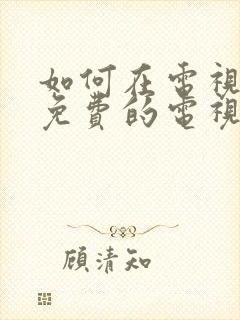 如何在電視
免費的電視
顧清知